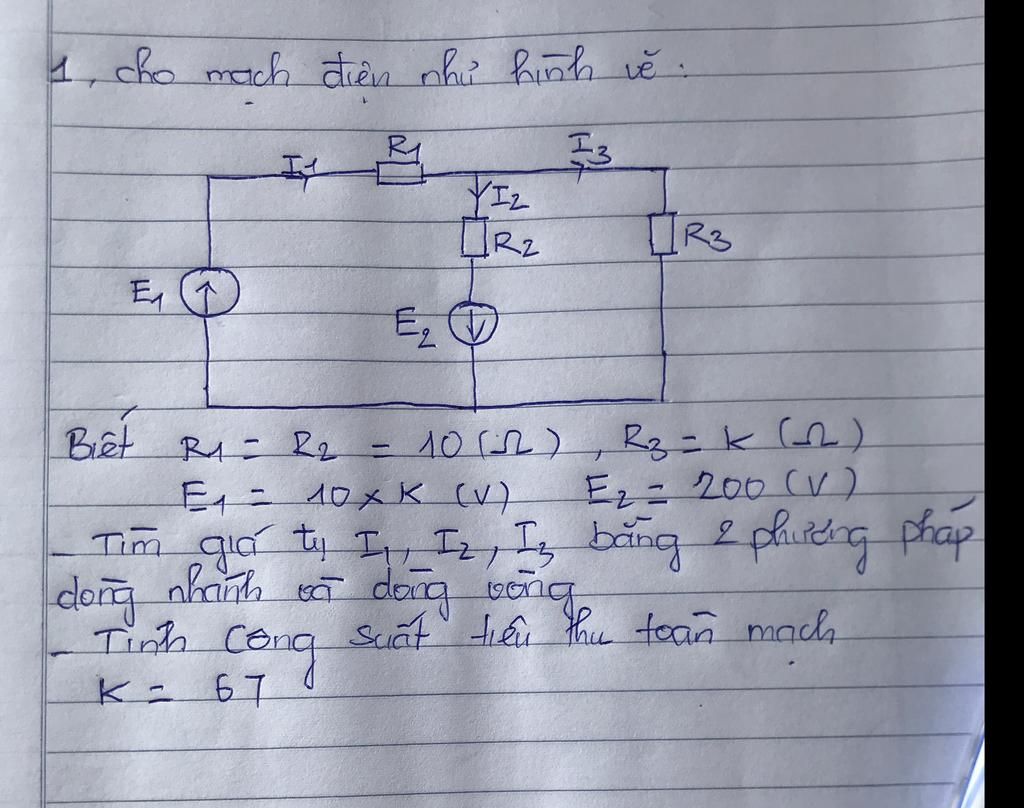 1, cho mạch điện như hình vẽ :
I1 R1 I3
I2
R2 R3
E1
E2
Biết R1 = R2 = 10 (Ω) , R3 = K (Ω)
E1 = 10 x K (V) E2 = 200 (V)
- Tìm giá trị I1, I2, I3 bằng 2 phương pháp
dòng nhánh và dòng vòng
- Tính công suất tiêu thụ toàn mạch
K = 67